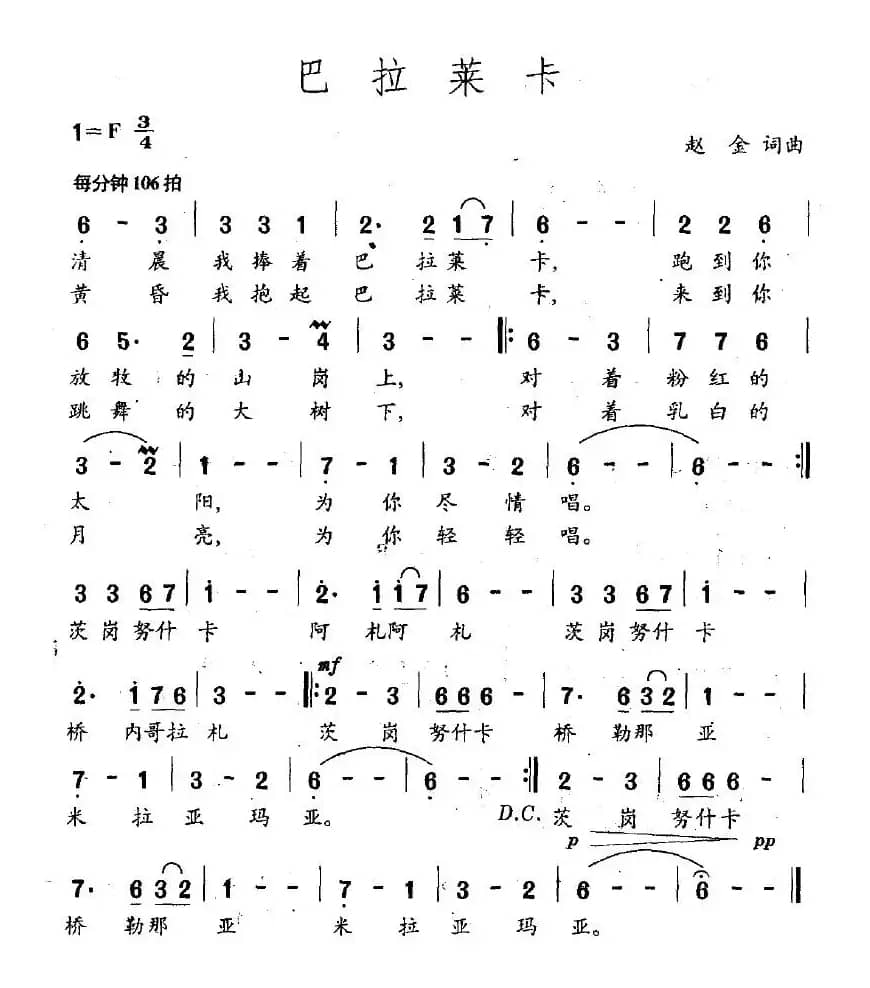 巴拉莱卡
1=F 3/4
赵 金 词曲
每分钟106拍
6 - 3 | 3 3 1 | 2· 2 1 7 | 6 - - | 2 2 6 |
清 晨 我捧着 巴 拉莱 卡, 跑到你
黄 昏 我抱起 巴 拉莱 卡, 来到你
6 5· 2 | 3 - 4 | 3 - - |: 6 - 3 | 7 7 6 |
放牧的山 岗 上, 对 着 粉红的
跳舞的大 树 下, 对 着 乳白的
3 - 2 | 1 - - | 7 - 1 | 3 - 2 | 6 - - | 6 - - :|
太 阳, 为 你 尽 情 唱。
月 亮, 为 你 轻 轻 唱。
3 3 6 7 | 1 - - | 2· 1 1 7 | 6 - - | 3 3 6 7 | 1 - - |
茨岗努什卡 阿 札阿 札 茨岗努什卡
mf
2· 1 7 6 | 3 - - |: 2 - 3 | 6 6 6 6 | 7· 6 3 2 | 1 - - |
桥 内哥拉札 茨 岗 努什卡 桥 勒那 亚
7 - 1 | 3 - 2 | 6 - - | 6 - - :| 2 - 3 | 6 6 6 6 |
米 拉 亚 玛 亚。 D.C. 茨 岗 努什卡
p pp
7· 6 3 2 | 1 - - | 7 - 1 | 3 - 2 | 6 - - | 6 - - ‖
桥 勒那 亚 米 拉 亚 玛 亚。